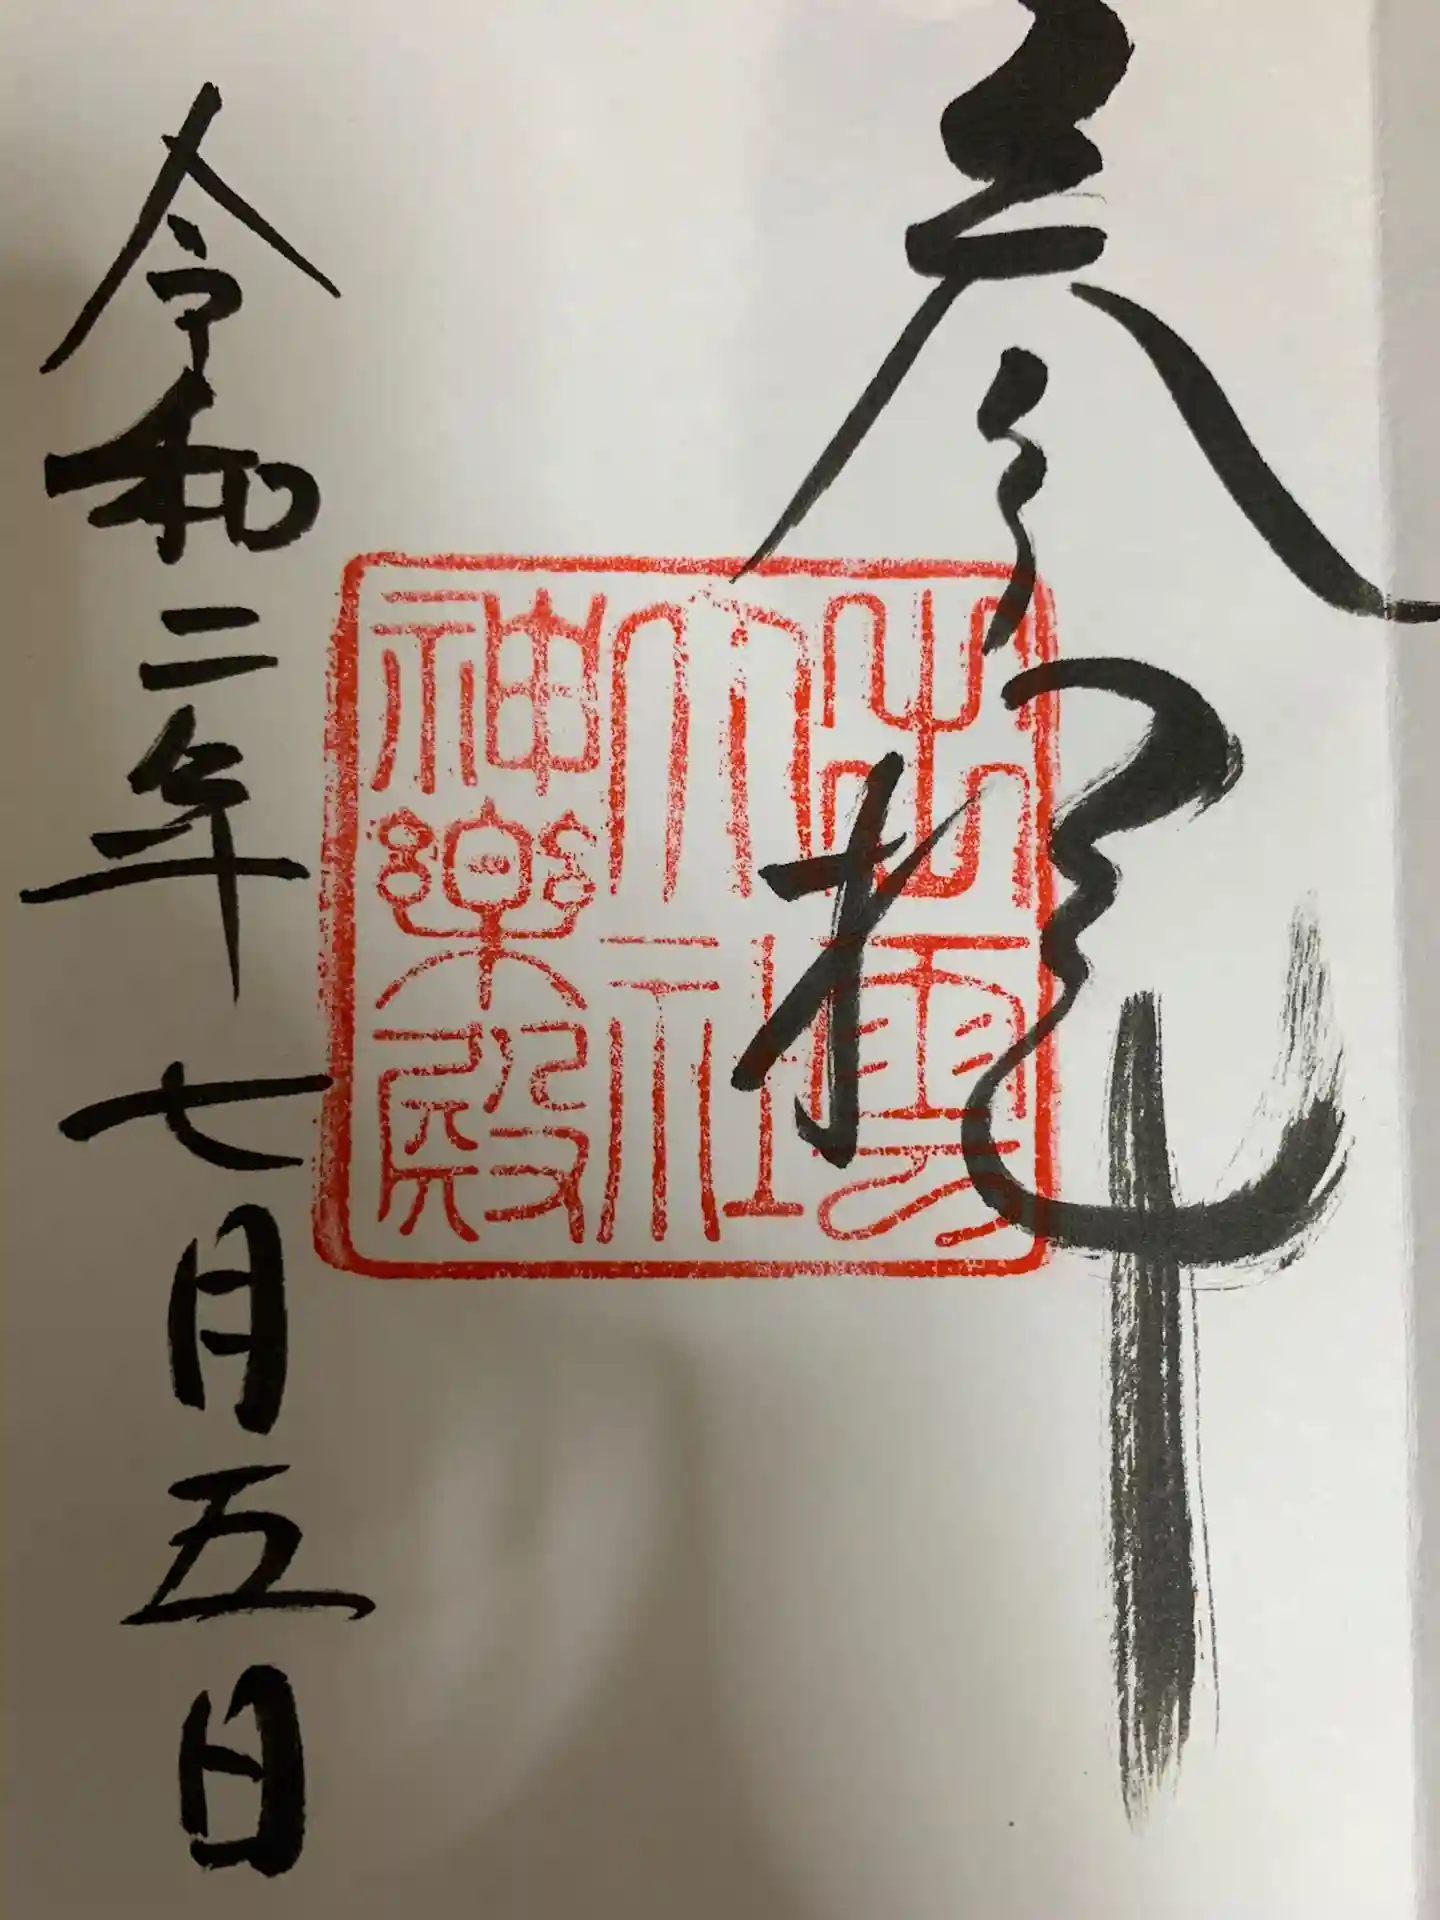 参拝
出雲
大社
神楽殿
令和二年七月五日